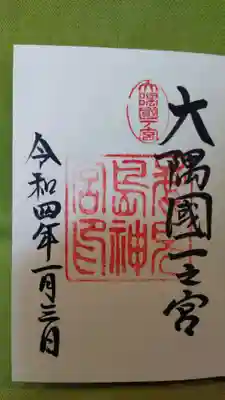 大隅國一之宮
大隅國一宮
鹿兒
島神
宮印
令和四年一月三日